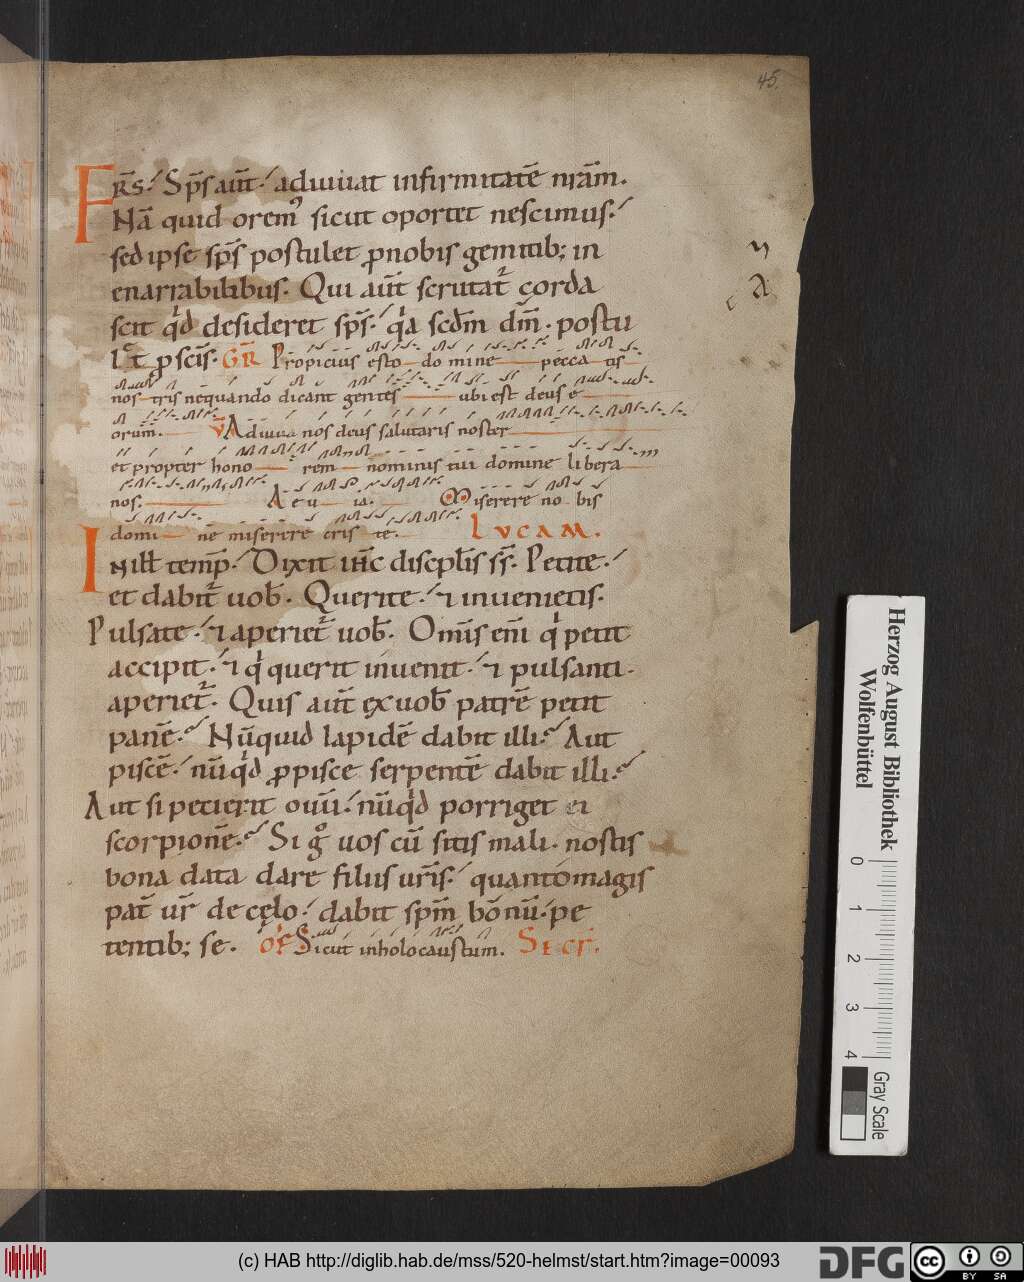 45.
FRs. Sp̄s aūt. adiuuat infirmitatē nr̄am.
Nā quid orem᾽ sicut oportet nescimus.
sed ipse sp̄s postulet ꝓnobis gemitib; in
enarrabilibus. Qui aūt scrutat᷑ corda
scit qͥd desideret sp̄s. qͥa scd̄m dm̄. postu
lat ꝓ scīs. GR Propicius esto domine pecca tis
nos tris nequando dicant gentes ubi est deus e
orum. V̄ Adiuua nos deus salutaris noster
et propter hono rem nominis tui domine libera
nos. A e u ia. Miserere no bis
domi ne miserere cris te. LVCAM.
Inill̄ temp̄. Dixit ih̄c discipl̄is s̄s. Petite.
et dabit᷑ uob̄. Querite. ⁊ inuenietis.
Pulsate. ⁊ aperiet᷑ uob̄. Omīs enī qͥ petit
accipit. ⁊ qͥ querit inuenit. ⁊ pulsanti.
aperiet᷑. Quis aūt ex uob̄ patrē petit
panē. Nūquid lapidē dabit illi. Aut
piscē. nūqͥd ꝓpisce serpentē dabit illi.
Aut si petierit ouū. nūqͥd porriget ei
scorpionē. Si gͦ uos cū sitis mali. nostis
bona data dare filiis ur̄is. quantomagis
pat̄ ur̄ de cęlo. dabit sp̄m bonū. pe
tentib; se. OF. Sicut inholocaustum. SECR.
n
a
Herzog August Bibliothek
Wolfenbüttel
0 1 2 3 4
Gray Scale
(c) HAB http://diglib.hab.de/mss/520-helmst/start.htm?image=00093
DFG
cc BY SA